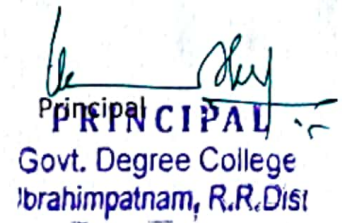 Principal
PRINCIPAL
Govt. Degree College
Ibrahimpatnam, R.R.Dist